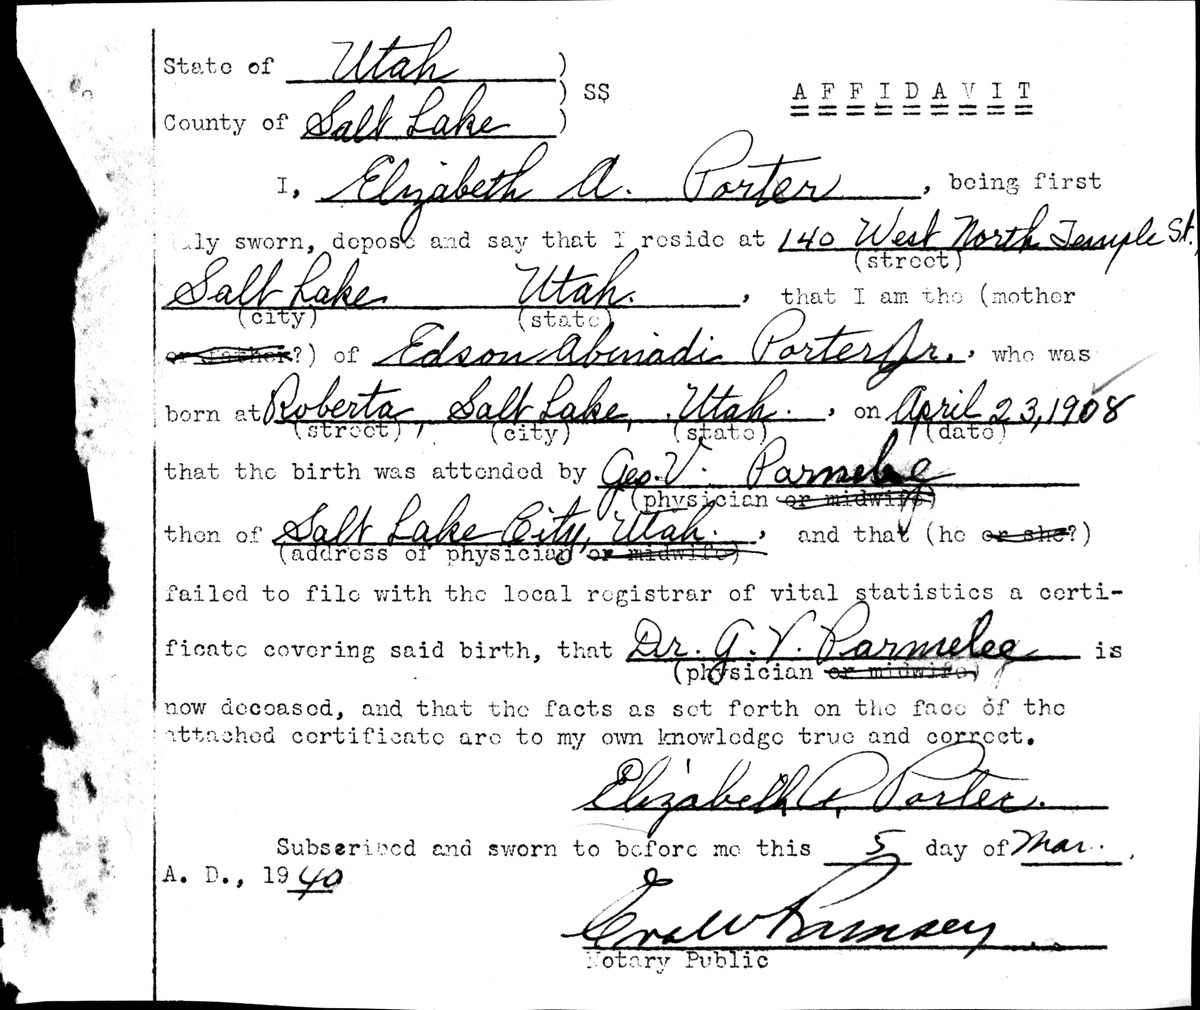 State of Utah )
) SS AFFIDAVIT
County of Salt Lake )
I, Elizabeth A. Porter, being first
uly sworn, depose and say that I reside at 140 West North Temple St.,
(street)
Salt Lake Utah., that I am the (mother
(city) (state)
or father?) of Edson Abinadi Porter Jr., who was
born at Roberta, Salt Lake, Utah., on April 23, 1908
(street), (city) (state) (date)
that the birth was attended by Geo. V. Parmelee
(physician or midwife)
then of Salt Lake City, Utah., and that (he or she?)
(address of physician or midwife)
failed to file with the local registrar of vital statistics a certi-
ficate covering said birth, that Dr. G. V. Parmelee is
(physician or midwife)
now deceased, and that the facts as set forth on the face of the
attached certificate are to my own knowledge true and correct.
Elizabeth A. Porter.
Subscribed and sworn to before me this 5 day of Mar.
A. D., 1940
Eva W Ramsey
Notary Public